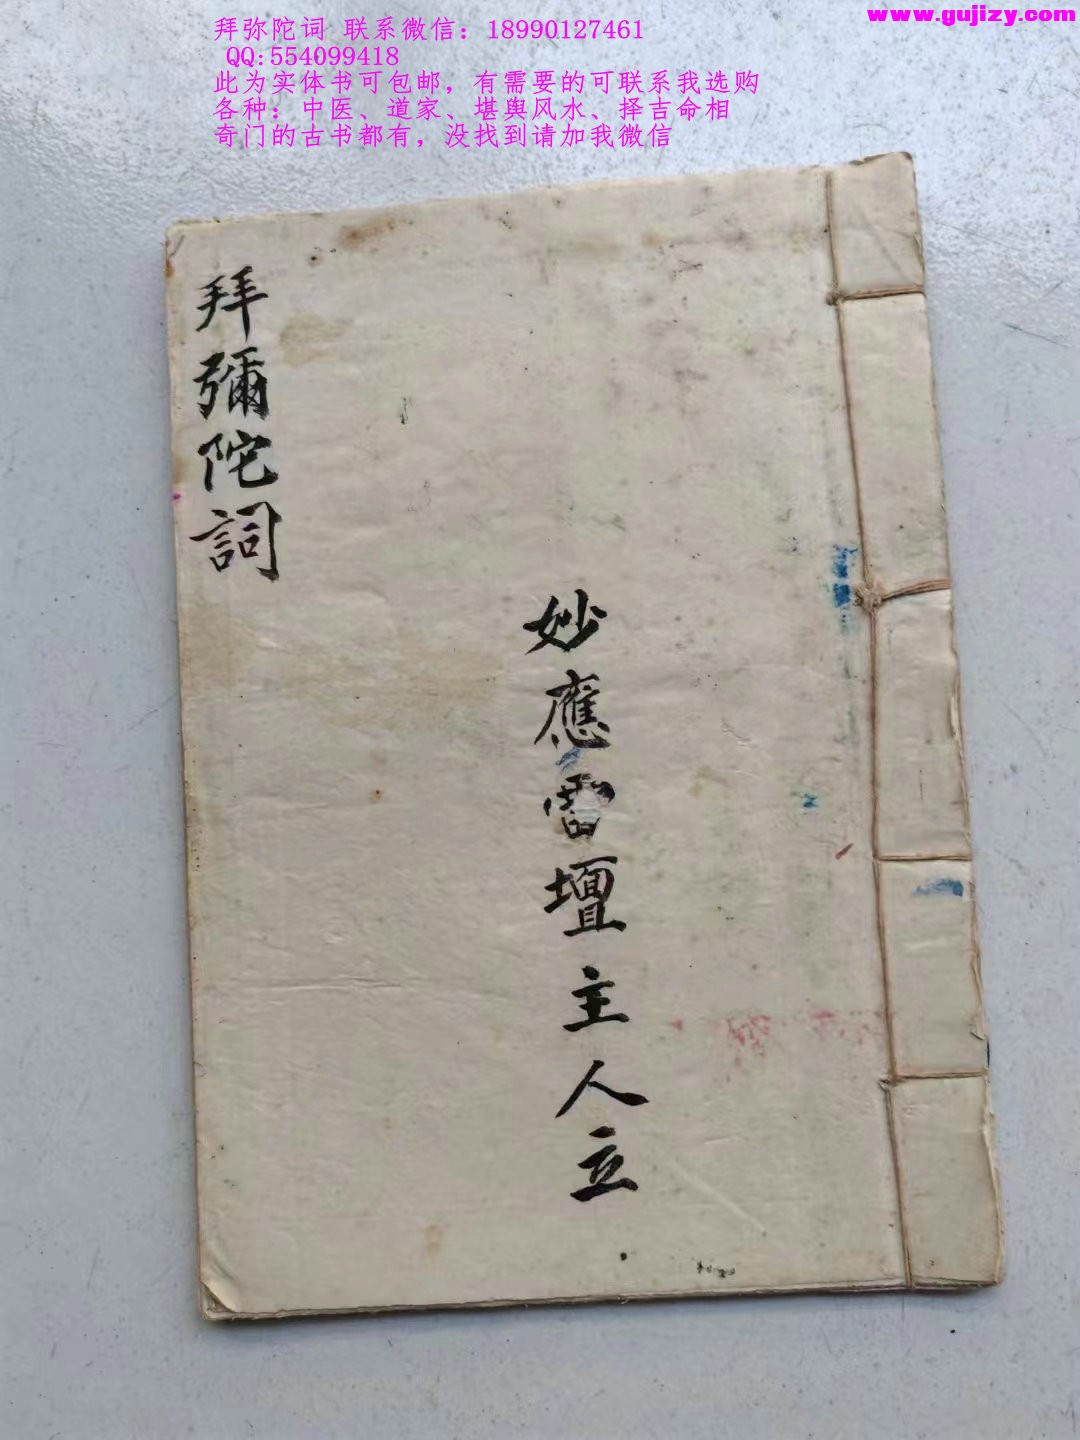 www.gujizy.com
拜弥陀词 联系微信：18990127461
QQ:554099418
此为实体书可包邮，有需要的可联系我选购
各种：中医、道家、堪舆风水、择吉命相
奇门的古书都有，没找到请加我微信
拜彌陀詞
妙應雷壇主人立